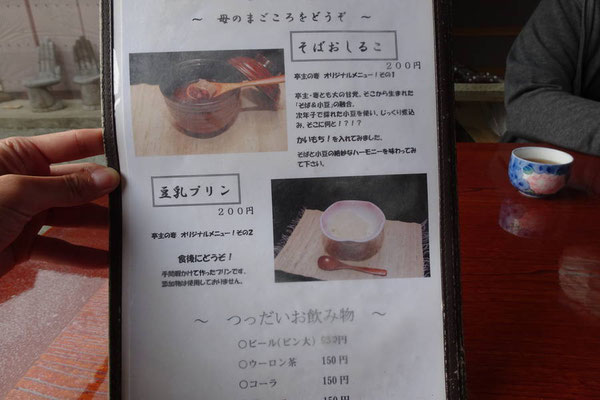 ～ 母のまごころをどうぞ ～
そばおしるこ
200円
亭主の奄 オリジナルメニュー！その1
亭主・奄とも大の甘党。そこから生まれた
「そば＆小豆」の融合。
次年子で採れた小豆を使い、じっくり煮込
み、そこに何と！？！？
かいもち！を入れてみました。
そばと小豆の絶妙なハーモニーを味わってみ
て下さい。
豆乳プリン
200円
亭主の奄 オリジナルメニュー！その2
食後にどうぞ！
手間暇かけて作ったプリンです。
添加物は使用しておりません。
～ つっだいお飲み物 ～
○ビール(ビン大)
○ウーロン茶 150円
○コーラ 150円
150円